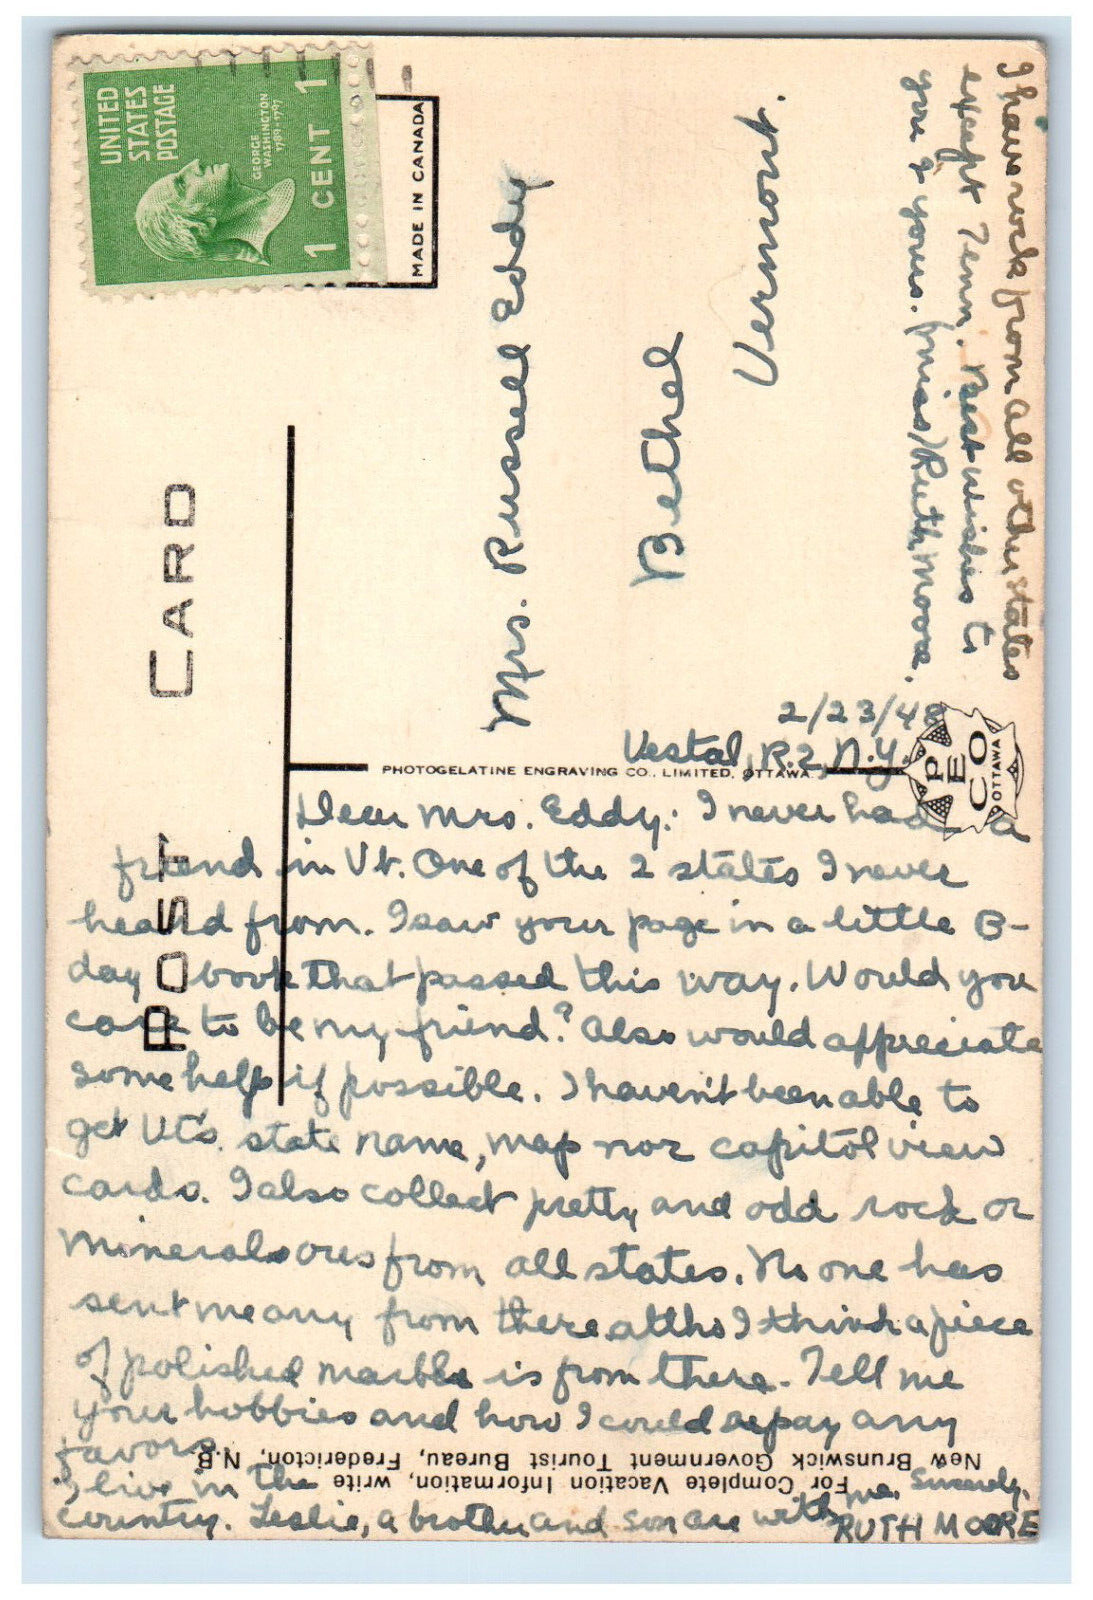 UNITED
STATES
POSTAGE
GEORGE
WASHINGTON
1789-1797
1 CENT 1
MADE IN CANADA
POST CARD
Mrs. Russell Eddy
Bethel
Vermont.
PHOTOGELATINE ENGRAVING CO., LIMITED, OTTAWA.
PECO
OTTAWA
2/23/48
Vestal, R.2, N.Y.
Dear Mrs. Eddy: I never had a
friend in Vt. One of the 2 states I never
heard from. I saw your page in a little B-
day book that passed this way. Would you
care to be my friend? Also would appreciate
some help if possible. I haven't been able to
get Vt's. state name, map nor capitol view
cards. I also collect pretty and odd rock or
minerals ores from all states. No one has
sent me any from there altho I think a piece
of polished marble is from there. Tell me
your hobbies and how I could repay any
favors.
I live in the
country. Leslie, a brother and son are with me. Sincerely,
RUTH MOORE
For Complete Vacation Information, write,
New Brunswick Government Tourist Bureau, Fredericton, N.B.
I have rock from all other states
except Tenn. Best wishes to
you & yours. (miss) Ruth Moore.